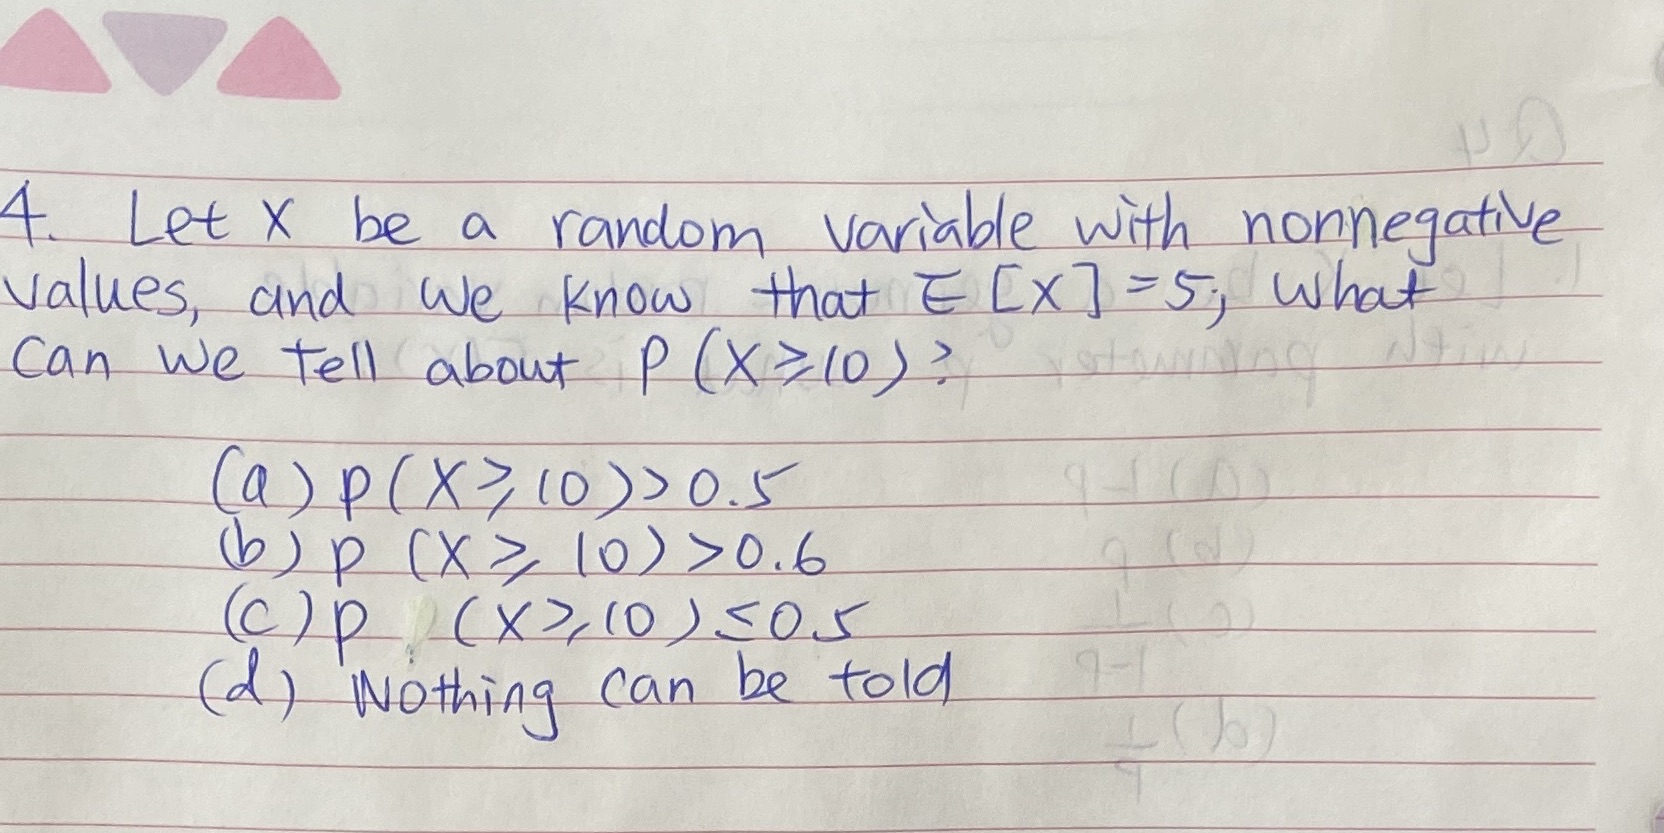 4. Let X be a random variable with nonnegative
values, and we know that E[X]=5; What
can we tell about P(X≥10)?
(a) p(X≥10)>0.5
(b) p (X≥10)>0.6
(c) p (X≥10)≤0.5
(d) Nothing can be told